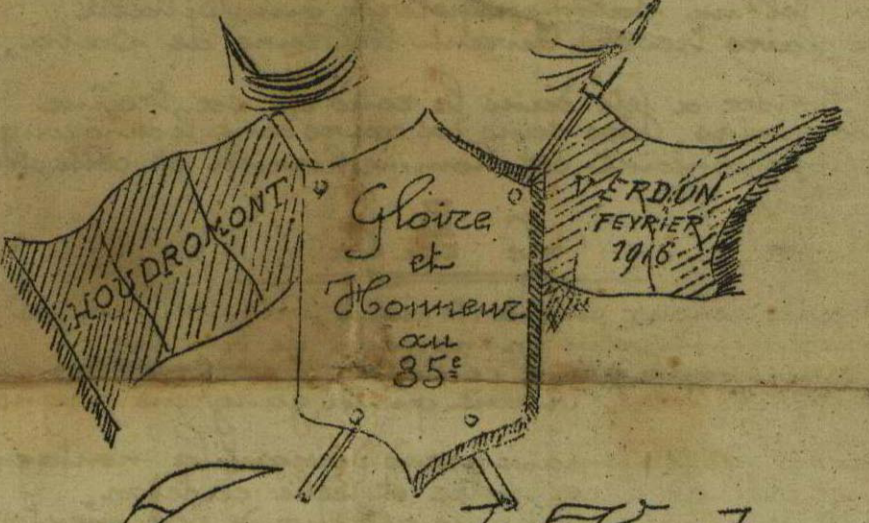 HOUDROMONT
Gloire
et
Honneur
au
85ᵉ
VERDUN
FEVRIER
1916